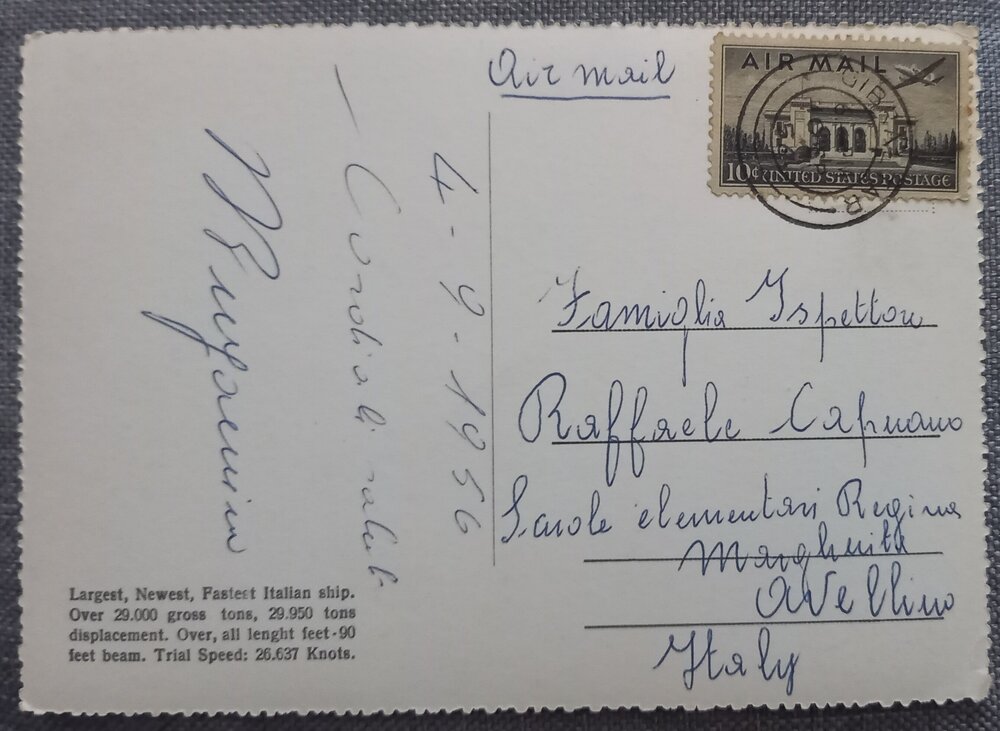 4-9-1956
— Cordiali saluti
Largest, Newest, Fastest Italian ship.
Over 29.000 gross tons, 29.950 tons
displacement. Over, all lenght feet-90
feet beam. Trial Speed: 26.637 Knots.
Air mail
AIR MAIL
10¢ UNITED STATES POSTAGE
Famiglia Ispettore
Raffaele Capuano
Scuole elementari Regina
Margherita
Avellino
Italy